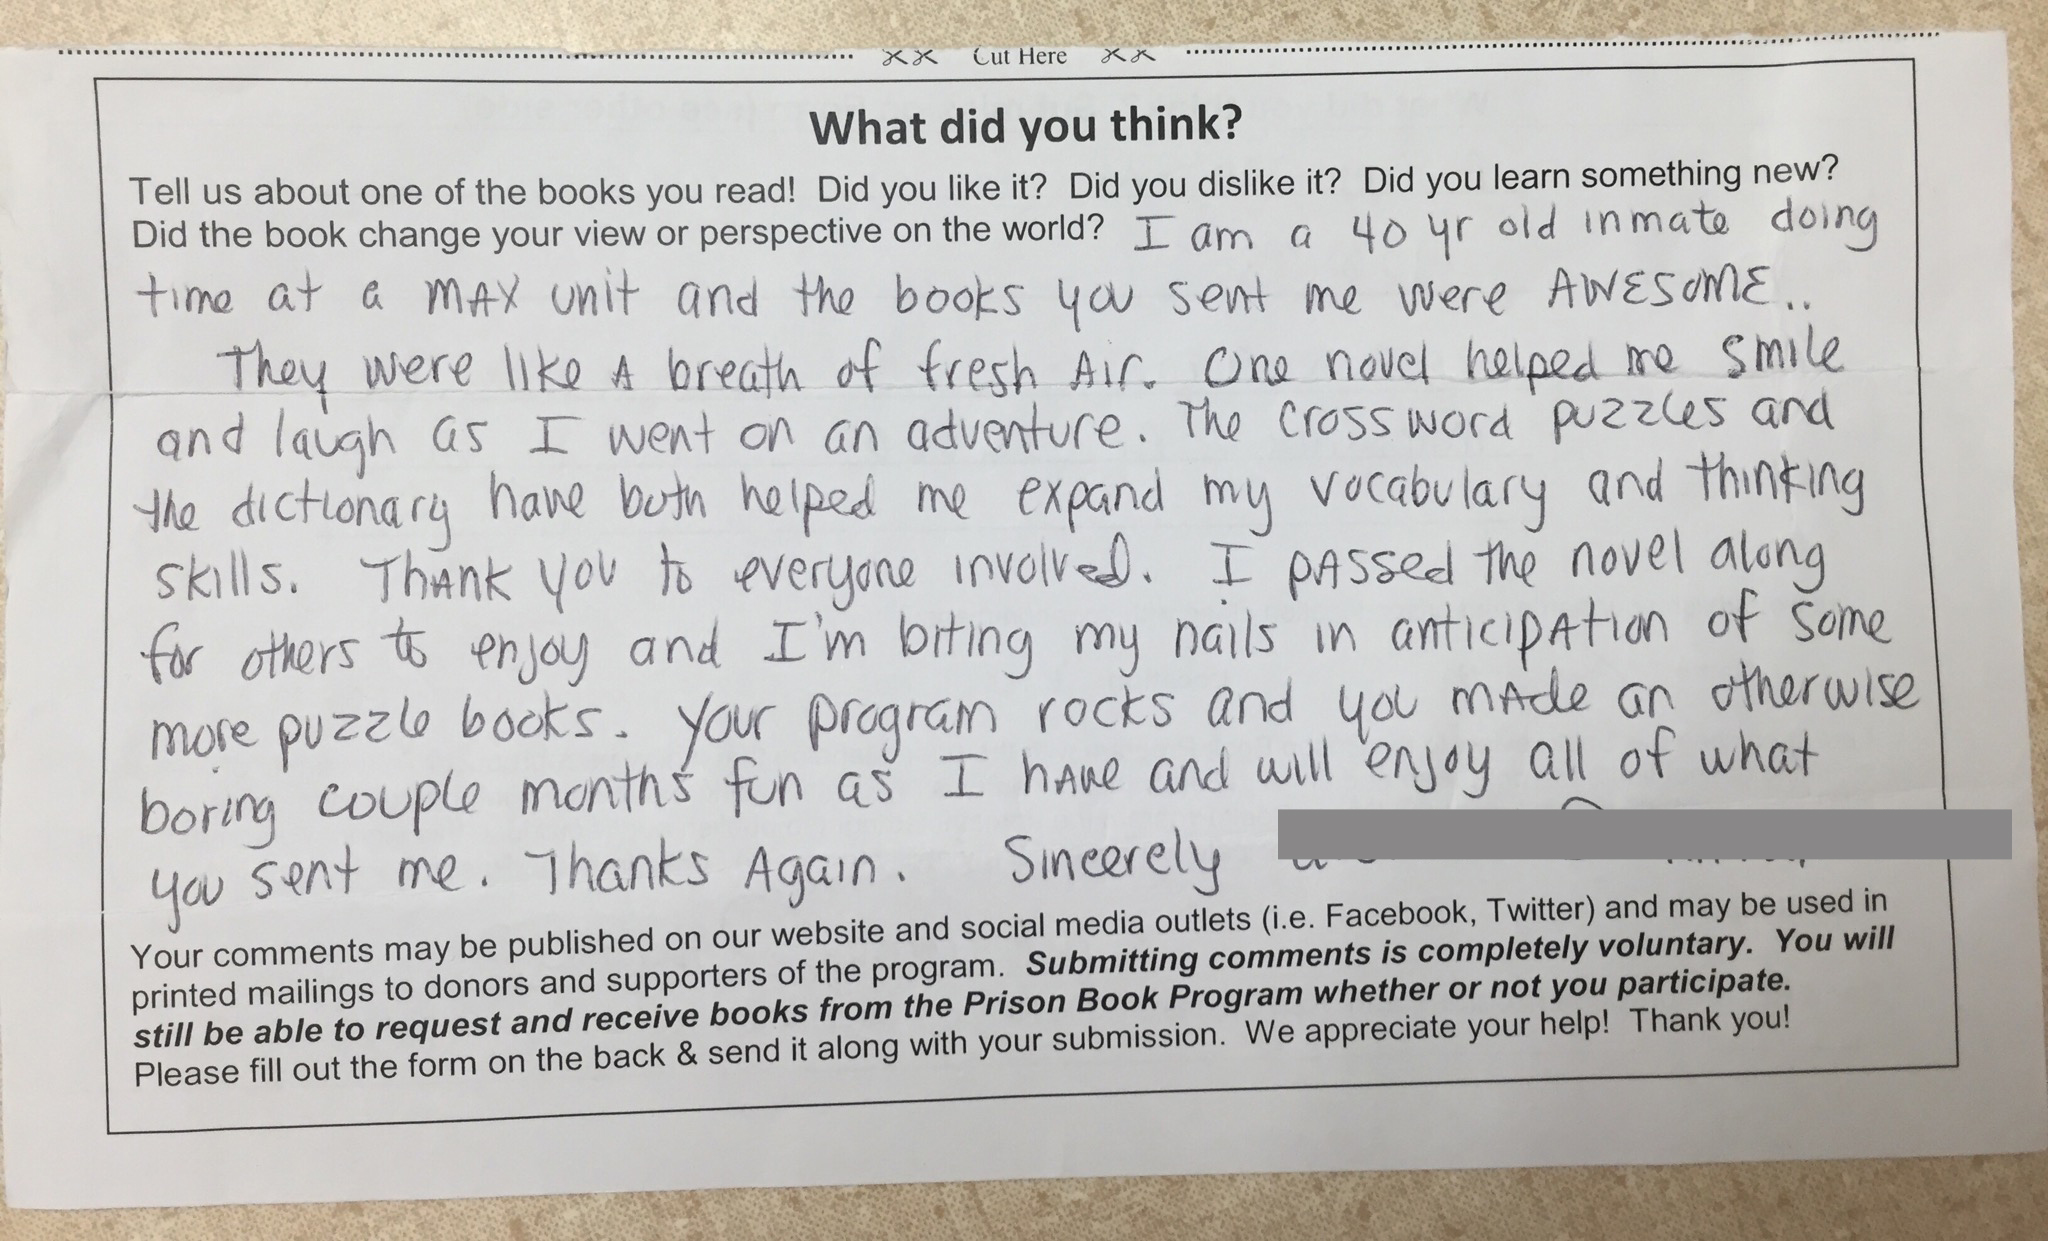 Cut Here
What did you think?
Tell us about one of the books you read! Did you like it? Did you dislike it? Did you learn something new?
Did the book change your view or perspective on the world? I am a 40 yr old inmate doing
time at a MAX unit and the books you sent me were AWESOME..
They were like A breath of fresh Air. One novel helped me smile
and laugh as I went on an adventure. The crossword puzzles and
the dictionary have both helped me expand my vocabulary and thinking
skills. Thank you to everyone involved. I passed the novel along
for others to enjoy and I'm biting my nails in anticipation of some
more puzzle books. Your program rocks and you made an otherwise
boring couple months fun as I have and will enjoy all of what
you sent me. Thanks Again. Sincerely
Your comments may be published on our website and social media outlets (i.e. Facebook, Twitter) and may be used in
printed mailings to donors and supporters of the program. Submitting comments is completely voluntary. You will
still be able to request and receive books from the Prison Book Program whether or not you participate.
Please fill out the form on the back & send it along with your submission. We appreciate your help! Thank you!